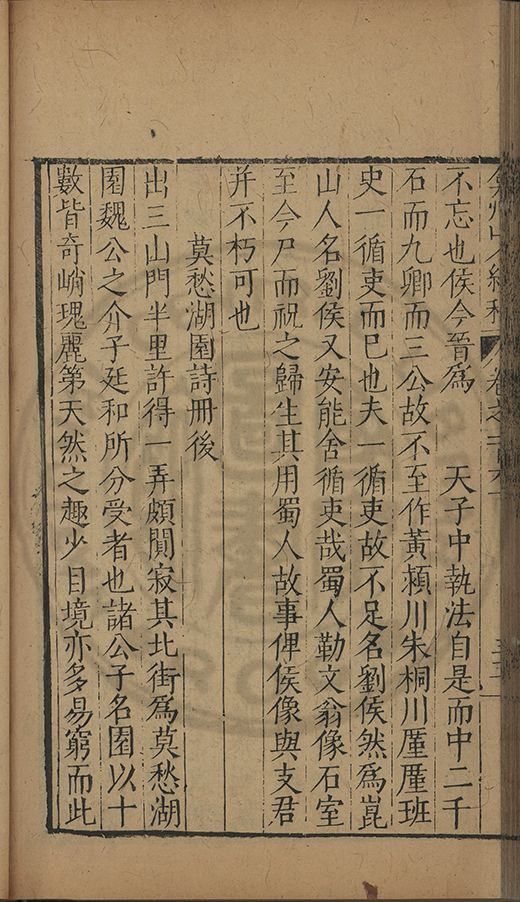 弇州山人續稿 卷之一百六十
不忘也侯今晉爲 天子中執法自是而中二千
石而九卿而三公故不至作黃潁川朱桐川厪厪班
史一循吏而巳也夫一循吏故不足名劉侯然爲崑
山人名劉侯又安能舍循吏哉蜀人勒文翁像石室
至今尸而祝之歸生其用蜀人故事俾侯像與支君
并不朽可也
莫愁湖園詩冊後
出三山門半里許得一弄頗閴寂其北街爲莫愁湖
園魏公之介子廷和所分受者也諸公子名園以十
數皆奇峭瑰麗第天然之趣少目境亦多易窮而此